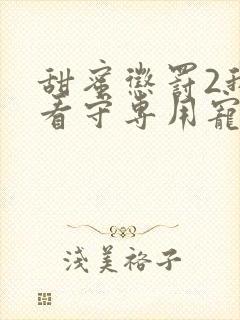 甜蜜懲罰2我
看守專用寵
淺美裕子